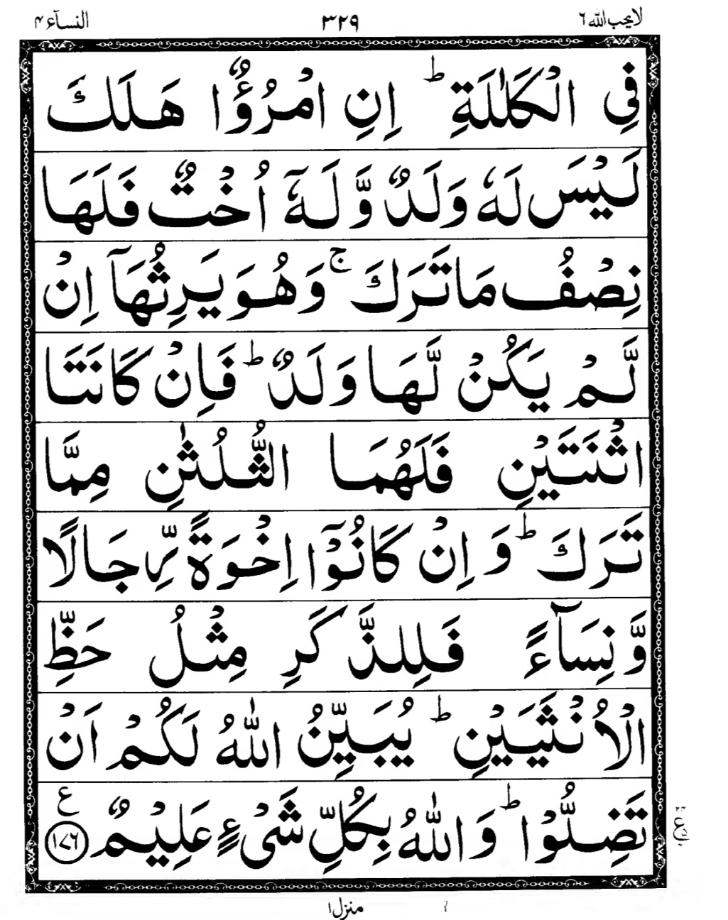 لایحب الله ۶ ۳۲۹ النسآء ۴
فِی الْكَلٰلَةِ ؕ اِنِ امْرُؤٌا هَلَكَ
لَیْسَ لَهٗ وَلَدٌ وَّلَهٗۤ اُخْتٌ فَلَهَا
نِصْفُ مَا تَرَكَ ۚ وَهُوَ یَرِثُهَاۤ اِنْ
لَّمْ یَكُنْ لَّهَا وَلَدٌ ؕ فَاِنْ كَانَتَا
اثْنَتَیْنِ فَلَهُمَا الثُّلُثٰنِ مِمَّا
تَرَكَ ؕ وَ اِنْ كَانُوْۤا اِخْوَةً رِّجَالًا
وَّنِسَآءً فَلِلذَّكَرِ مِثْلُ حَظِّ
الْاُنْثَیَیْنِ ؕ یُبَیِّنُ اللّٰهُ لَكُمْ اَنْ
تَضِلُّوْا ؕ وَاللّٰهُ بِكُلِّ شَیْءٍ عَلِیْمٌ ﴿۱۷۶﴾ ع
منزل ۱